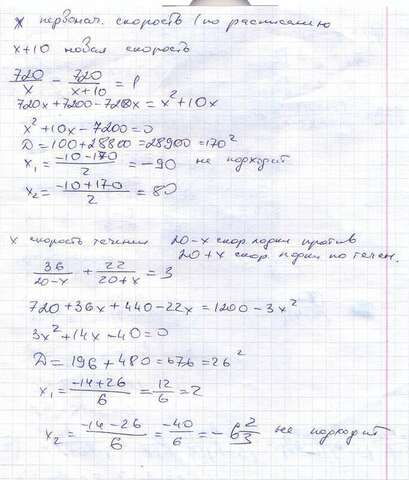 x первонач. скорость (по расписанию
x+10 новая скорость
720/x - 720/(x+10) = 1
720x+7200-720x = x²+10x
x²+10x-7200=0
D=100+28800=28900=170²
x₁ = (-10-170)/2 = -90 не подходит
x₂ = (-10+170)/2 = 80
x скорость течения 20-x скор. лодки против
20+x скор. лодки по течен.
36/(20-x) + 22/(20+x) = 3
720+36x+440-22x=1200-3x²
3x²+14x-40=0
D=196+480=676=26²
x₁ = (-14+26)/6 = 12/6 = 2
x₂ = (-14-26)/6 = -40/6 = -6 2/3 не подходит